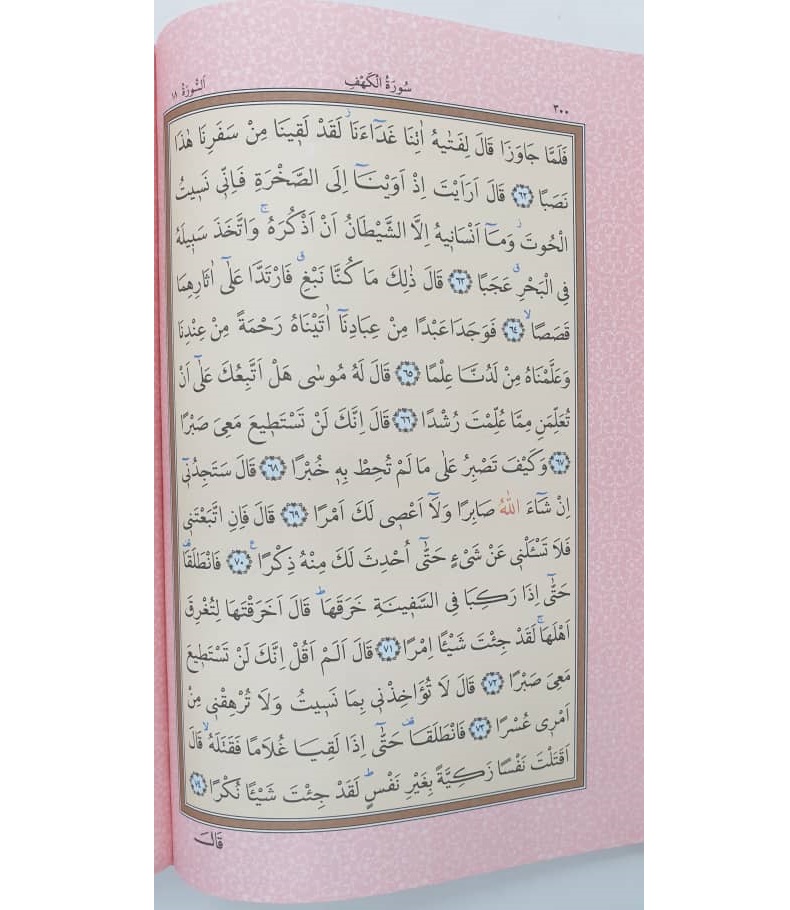 اَلسُّورَةُ ١٨
سُورَةُ الْكَهْفِ
٣٠٠
فَلَمَّا جَاوَزَا قَالَ لِفَتٰيهُ اٰتِنَا غَدَٓاءَنَاۘ لَقَدْ لَقٖينَا مِنْ سَفَرِنَا هٰذَا
نَصَبًا ﴿٦٢﴾ قَالَ اَرَاَيْتَ اِذْ اَوَيْنَٓا اِلَى الصَّخْرَةِ فَاِنّٖى نَسٖيتُ
الْحُوتَۘ وَمَٓا اَنْسَانٖيهُ اِلَّا الشَّيْطَانُ اَنْ اَذْكُرَهُۚ وَاتَّخَذَ سَبٖيلَهُ
فِى الْبَحْرِۗ عَجَبًا ﴿٦٣﴾ قَالَ ذٰلِكَ مَا كُنَّا نَبْغِۗ فَارْتَدَّا عَلٰٓى اٰثَارِهِمَا
قَصَصًاۙ ﴿٦٤﴾ فَوَجَدَا عَبْدًا مِنْ عِبَادِنَٓا اٰتَيْنَاهُ رَحْمَةً مِنْ عِنْدِنَا
وَعَلَّمْنَاهُ مِنْ لَدُنَّا عِلْمًا ﴿٦٥﴾ قَالَ لَهُ مُوسٰى هَلْ اَتَّبِعُكَ عَلٰٓى اَنْ
تُعَلِّمَنِ مِمَّا عُلِّمْتَ رُشْدًا ﴿٦٦﴾ قَالَ اِنَّكَ لَنْ تَسْتَطٖيعَ مَعِىَ صَبْرًا
﴿٦٧﴾ وَكَيْفَ تَصْبِرُ عَلٰى مَا لَمْ تُحِطْ بِهٖ خُبْرًا ﴿٦٨﴾ قَالَ سَتَجِدُنٖٓى
اِنْ شَٓاءَ اللّٰهُ صَابِرًا وَلَٓا اَعْصٖى لَكَ اَمْرًا ﴿٦٩﴾ قَالَ فَاِنِ اتَّبَعْتَنٖى
فَلَا تَسْـَٔلْنٖى عَنْ شَىْءٍ حَتّٰٓى اُحْدِثَ لَكَ مِنْهُ ذِكْرًا ﴿٧٠﴾ فَانْطَلَقَا
حَتّٰٓى اِذَا رَكِبَا فِى السَّفٖينَةِ خَرَقَهَاؕ قَالَ اَخَرَقْتَهَا لِتُغْرِقَ
اَهْلَهَاۚ لَقَدْ جِئْتَ شَيْـًٔا اِمْرًا ﴿٧١﴾ قَالَ اَلَمْ اَقُلْ اِنَّكَ لَنْ تَسْتَطٖيعَ
مَعِىَ صَبْرًا ﴿٧٢﴾ قَالَ لَا تُؤَاخِذْنٖى بِمَا نَسٖيتُ وَلَا تُرْهِقْنٖى مِنْ
اَمْرٖى عُسْرًا ﴿٧٣﴾ فَانْطَلَقَا حَتّٰٓى اِذَا لَقِيَا غُلَامًا فَقَتَلَهُۙ قَالَ
اَقَتَلْتَ نَفْسًا زَكِيَّةً بِغَيْرِ نَفْسٍؕ لَقَدْ جِئْتَ شَيْـًٔا نُكْرًا ﴿٧٤﴾
قَالَ